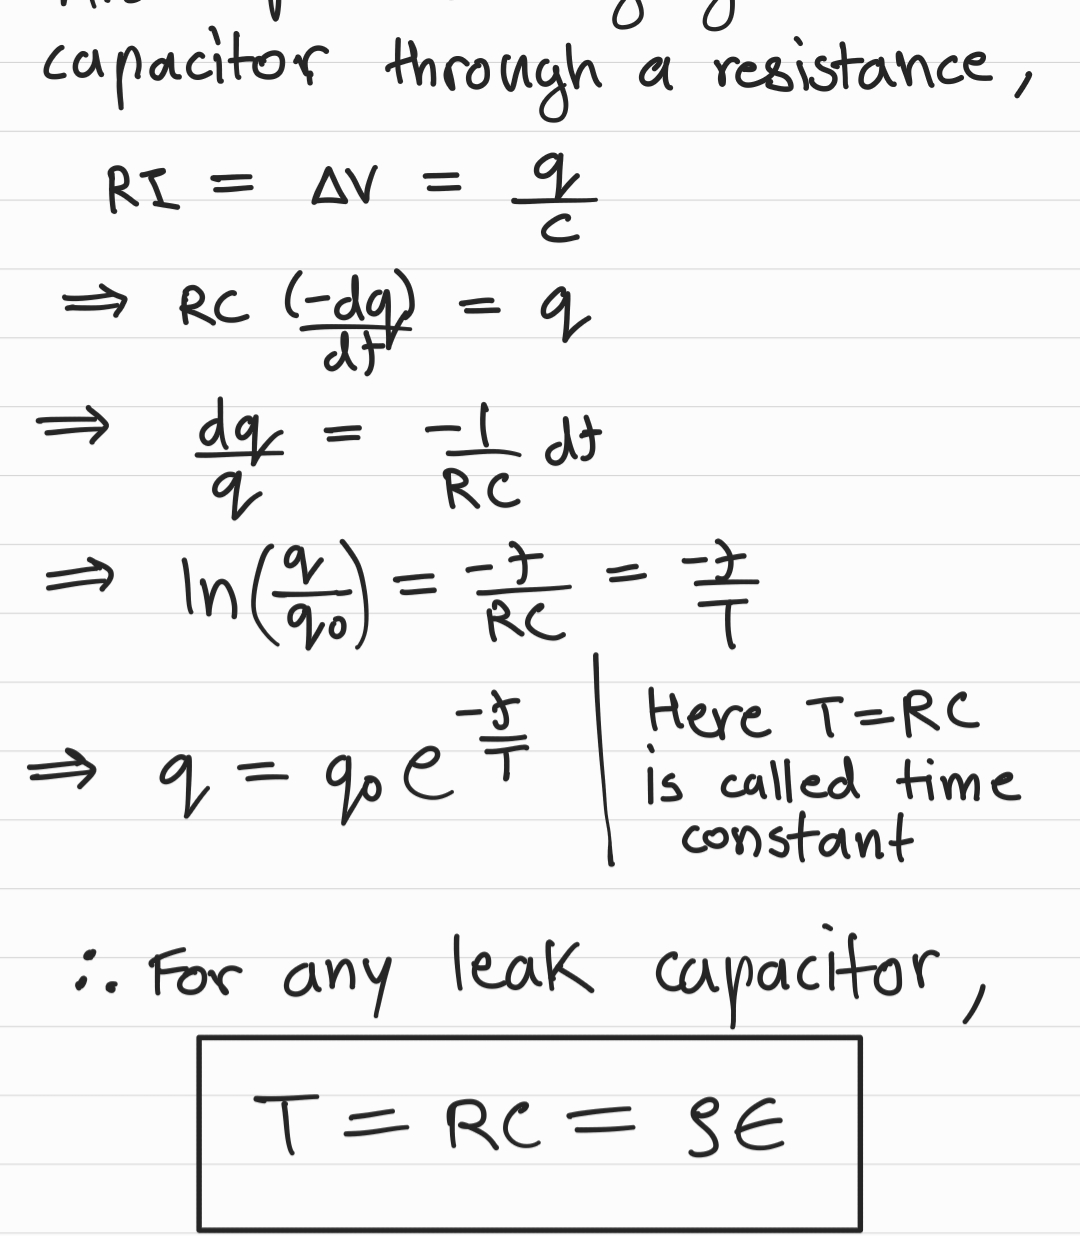 capacitor through a resistance,
RI = ΔV = q/C
⇒ RC (-dq)/dt = q
⇒ dq/q = -1/RC dt
⇒ ln(q/q₀) = -t/RC = -t/T
⇒ q = q₀ e^(-t/T)
Here T = RC
is called time
constant
∴ For any leak capacitor,
T = RC = ρϵ